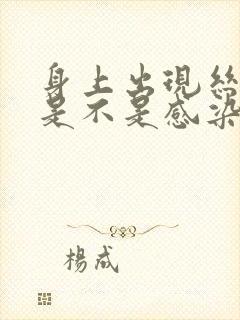 身上出現絲
是不是感染
楊成